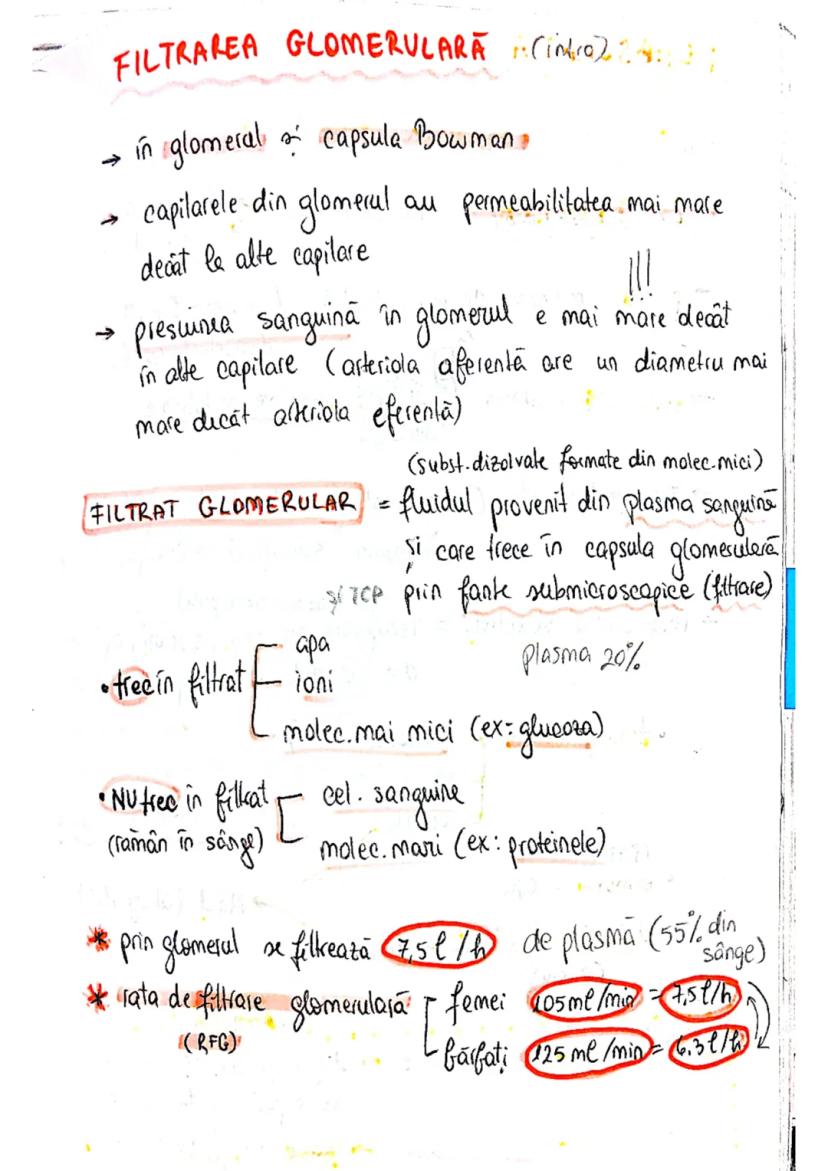 FILTRAREA GLOMERULARĂ (intro)
→ în glomerul și capsula Bowman
→ capilarele din glomerul au permeabilitatea mai mare
decât la alte capilare
!!!
→ presiunea sanguină în glomerul e mai mare decât
în alte capilare (arteriola aferentă are un diametru mai
mare decât arteriola eferentă)
(subst. dizolvate formate din molec. mici)
FILTRAT GLOMERULAR = fluidul provenit din plasma sanguină
și care trece în capsula glomerulară
și TCP prin fante submicroscopice (filtrare)
apa
plasma 20%
• trec în filtrat ioni
molec. mai mici (ex: glucoza)
• NU trec în filtrat cel. sanguine
(rămân în sânge) molec. mari (ex: proteinele)
* prin glomerul se filtrează 7,5 l/h de plasmă (55% din
sânge)
* rata de filtrare glomerulară femei 105 ml/min = 7,5 l/h
(RFG) bărbați 125 ml/min = 6.3 l/h